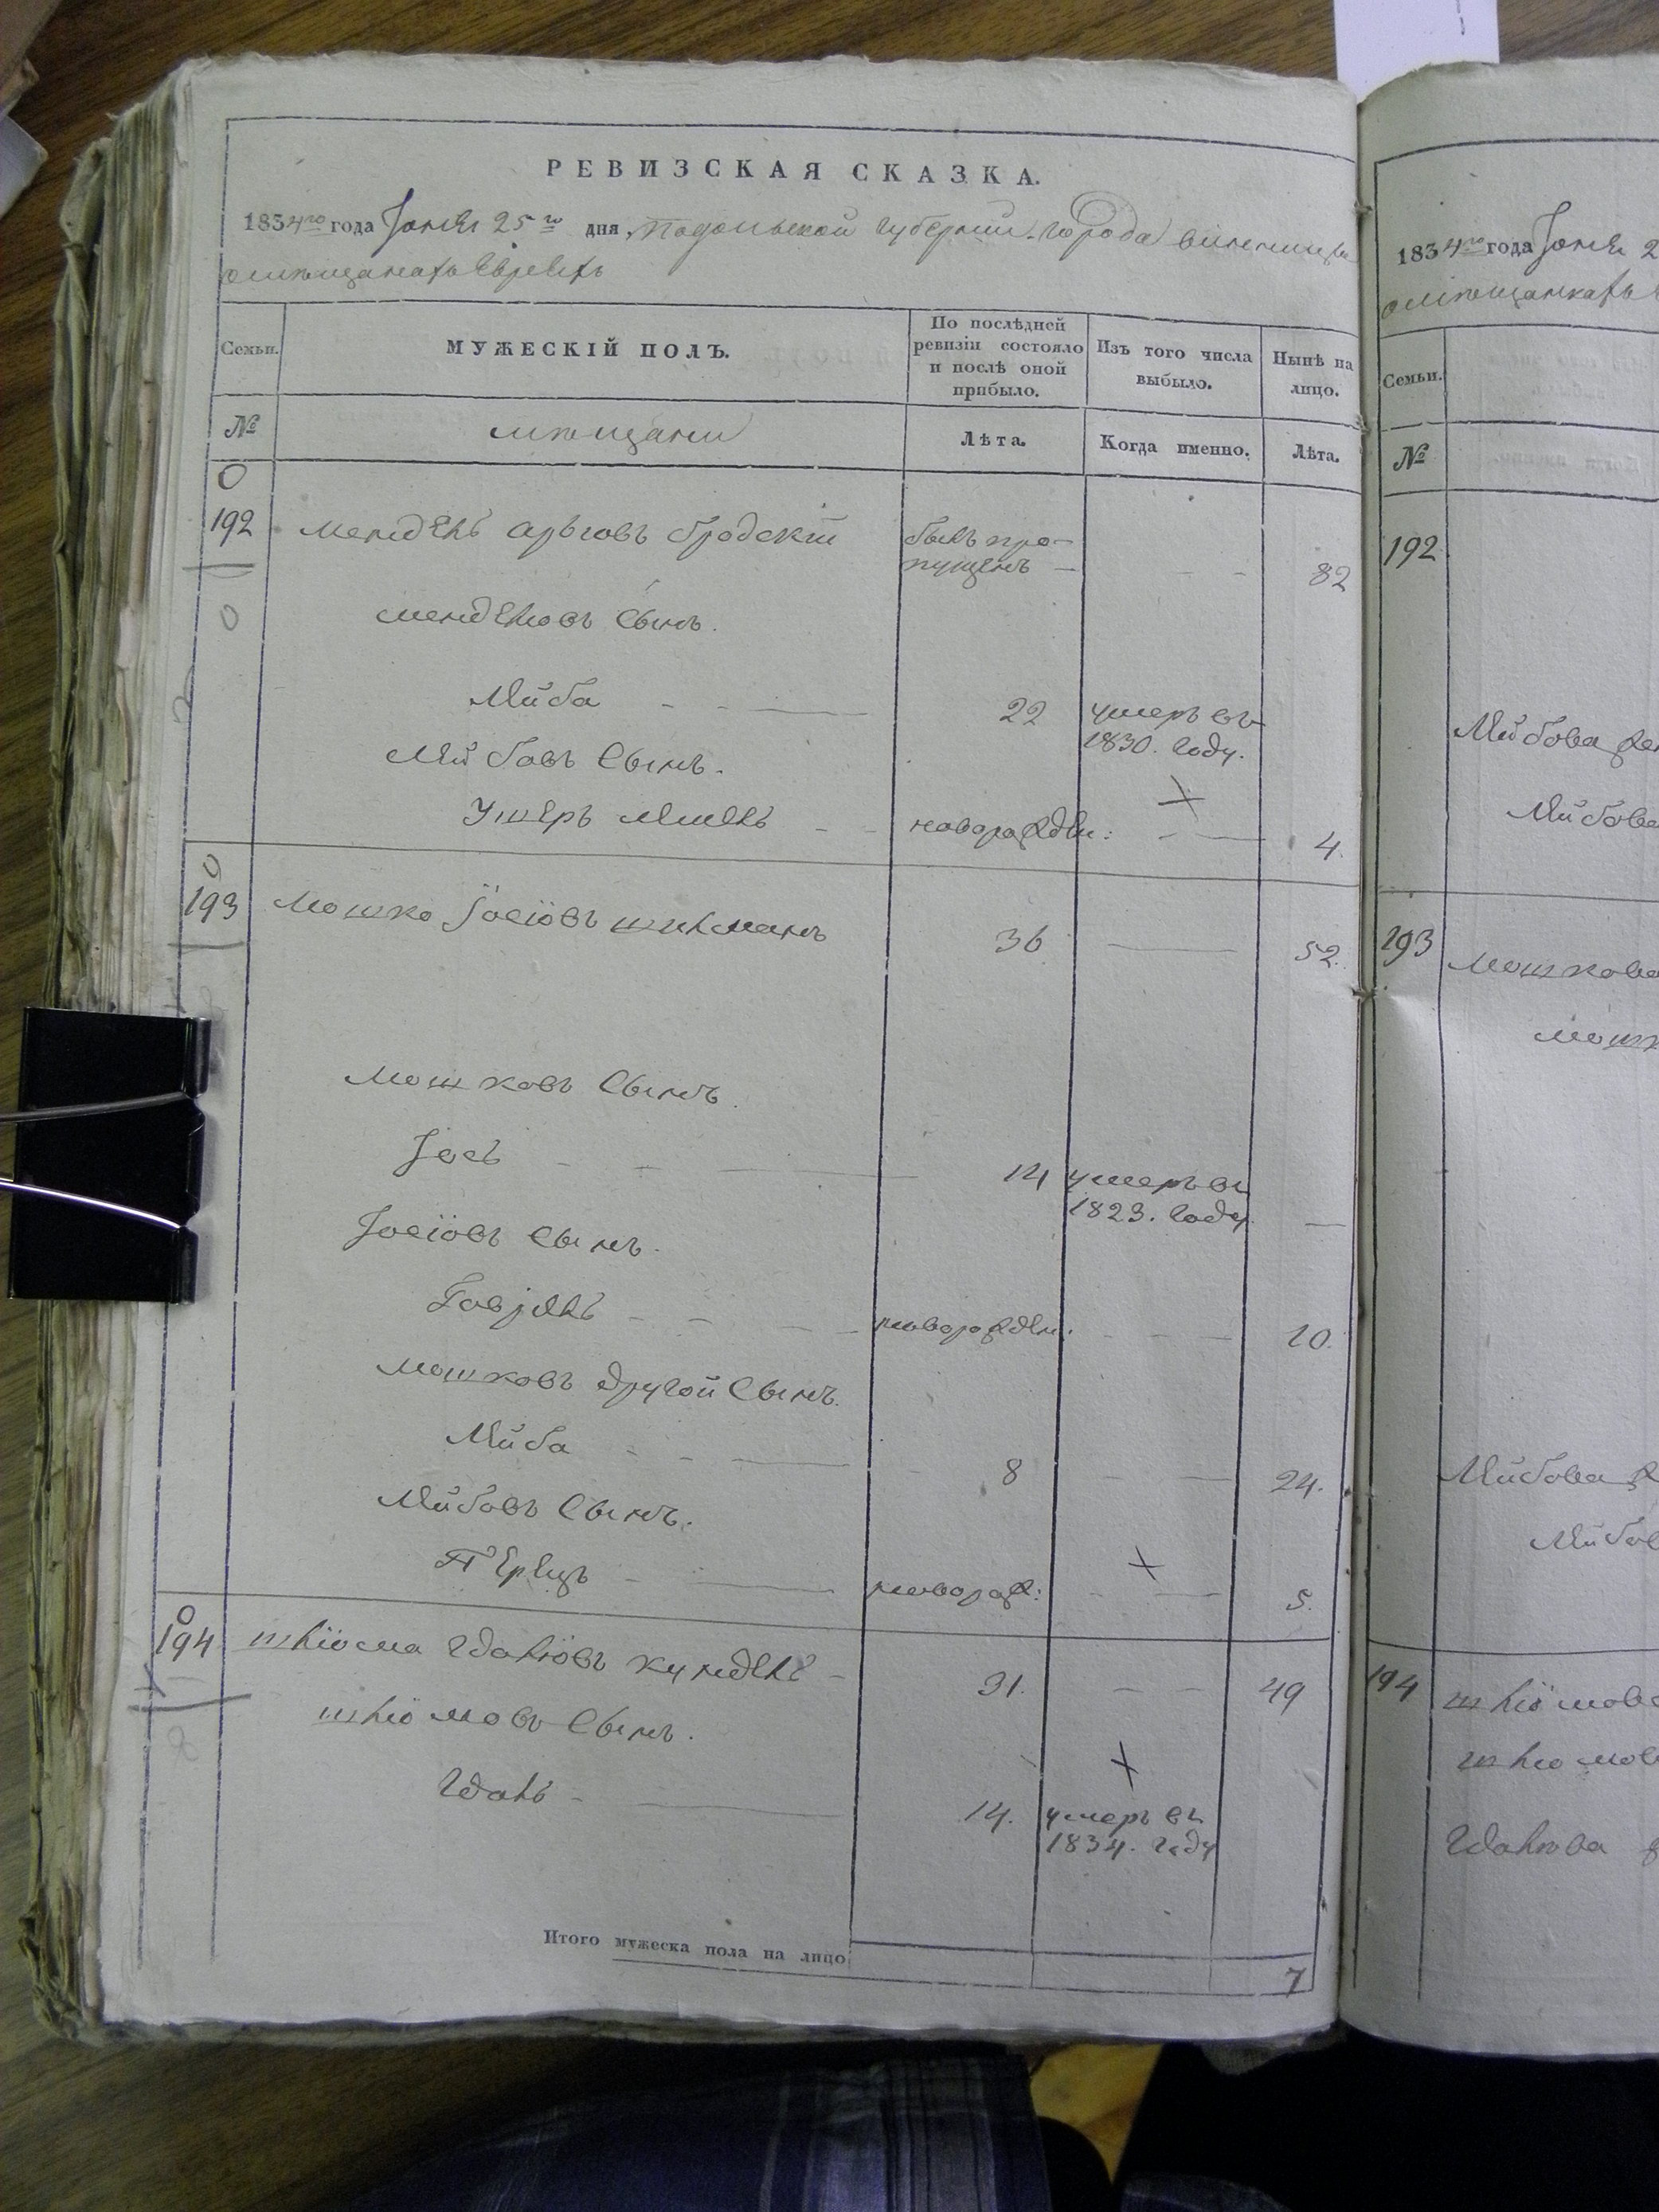 РЕВИЗСКАЯ СКАЗКА.
1834го года Іюня 25го дня, Подольской губерніи города Винницы
о мѣщанахъ Евреяхъ
Семьи.
МУЖЕСКІЙ ПОЛЪ.
По послѣдней ревизіи состояло и послѣ оной прибыло.
Изъ того числа выбыло.
Нынѣ на лицо.
№
мѣщани
Лѣта.
Когда именно.
Лѣта.
0
192 Мендель Арьговъ Бродскій былъ про-
пущенъ — — — 82
0
Менделювъ Сынъ.
Лейба — — — 22 умеръ въ
1830. году.
Лейбовъ Сынъ.
Ушеръ — — новорожден: — — 4.
0
193 Мошко Іосіовъ 36 — 52.
Мошковъ Сынъ.
Іось — — — 14 умеръ въ
1823. году. —
Іосіовъ Сынъ.
— — — — новорожден: — — — 10.
Мошковъ другой Сынъ.
Лейба — — — 8 — — 24.
Лейбовъ Сынъ.
Перецъ — — новорож: — — 5.
0
194 Шліома Гдаліовъ Кундель — 31. — — 49
Шліомовъ Сынъ.
Гдаль — — 14. умеръ въ
1834. году
Итого мужеска пола на лицо 7
1834го года Іюня 2
о мѣщанкахъ
Семьи.
№
192
Лейбова
Лейбова
193
Мошкова
Лейбова
194
Шліомова
Гдальова